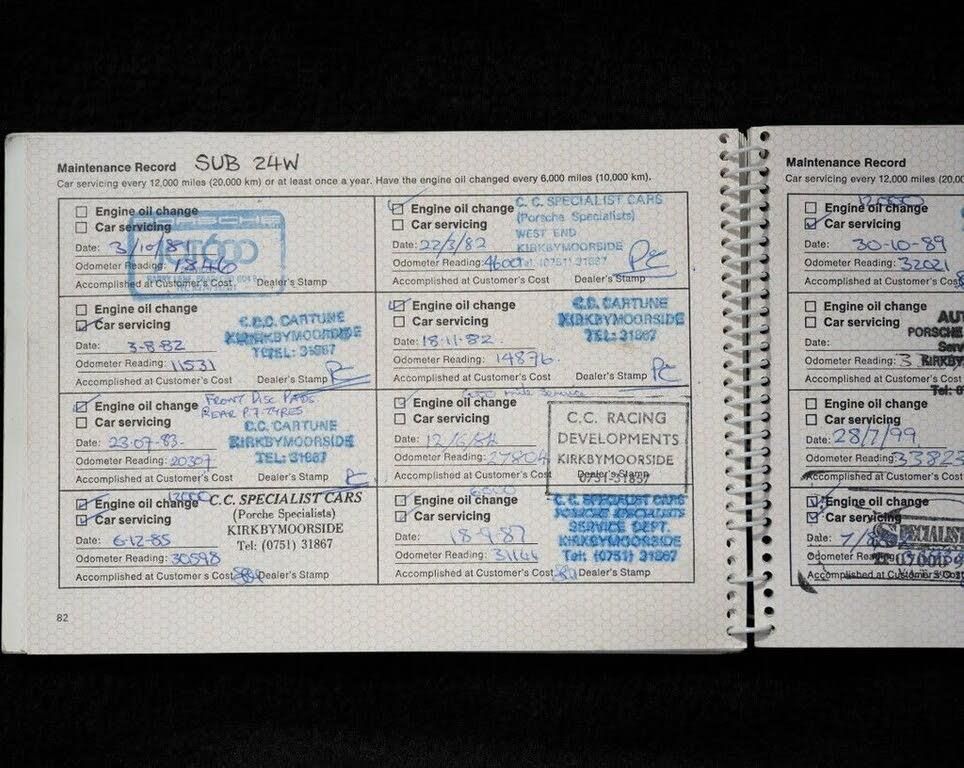 Maintenance Record SUB 24W
Car servicing every 12,000 miles (20,000 km) or at least once a year. Have the engine oil changed every 6,000 miles (10,000 km).
Engine oil change
PORSCHE
Car servicing
Date: 3/10/81
Odometer Reading: 1846
Accomplished at Customer's Cost Dealer's Stamp
Engine oil change
C. C. SPECIALIST CARS
(Porsche Specialists)
Car servicing
WEST END
Date: 22/3/82
KIRKBYMOORSIDE
Odometer Reading: 4600
Tel. (0751) 31867
PC
Accomplished at Customer's Cost Dealer's Stamp
Engine oil change
Car servicing
C.C. CARTUNE
KIRKBYMOORSIDE
TEL: 31867
Date: 3-8-82
Odometer Reading: 11531
Accomplished at Customer's Cost Dealer's Stamp
Engine oil change
Car servicing
C.C. CARTUNE
KIRKBYMOORSIDE
TEL: 31867
Date: 18-11-82.
Odometer Reading: 14876.
Accomplished at Customer's Cost Dealer's Stamp PC
Engine oil change FRONT DISC PADS.
REAR P.7. TYRES
Car servicing
C.C. CARTUNE
KIRKBYMOORSIDE
TEL: 31867
Date: 23-07-83-
Odometer Reading: 20307
Accomplished at Customer's Cost Dealer's Stamp
Engine oil change
Car servicing
C.C. RACING
DEVELOPMENTS
KIRKBYMOORSIDE
0751-31857
Date: 12/6/84
Odometer Reading: 27804
Accomplished at Customer's Cost Dealer's Stamp
12000
Engine oil change
Car servicing
C.C. SPECIALIST CARS
(Porche Specialists)
KIRKBYMOORSIDE
Tel: (0751) 31867
Date: 6-12-85
Odometer Reading: 30598
Accomplished at Customer's Cost Dealer's Stamp
6000
Engine oil change
Car servicing
C.C. SPECIALIST CARS
PORSCHE SPECIALISTS
SERVICE DEPT.
KIRKBYMOORSIDE
Tel: (0751) 31867
Date: 18-9-87
Odometer Reading: 31144
Accomplished at Customer's Cost Dealer's Stamp
82
Maintenance Record
Car servicing every 12,000 miles (20,00
12000
Engine oil change
Car servicing
Date: 30-10-89
Odometer Reading: 32021
Accomplished at Customer's Cos
Engine oil change
Car servicing
AU
PORSCHE
Date:
Serv
Odometer Reading: 3
KIRKBY
Accomplished at Customer's Cost
Tel: 0
Engine oil change
Car servicing
Date: 28/7/99.
Odometer Reading: 33823
Accomplished at Customer's Cost
Engine oil change
Car servicing
Date: 7/8
Odometer Reading:
Accomplished at Customer's Cost